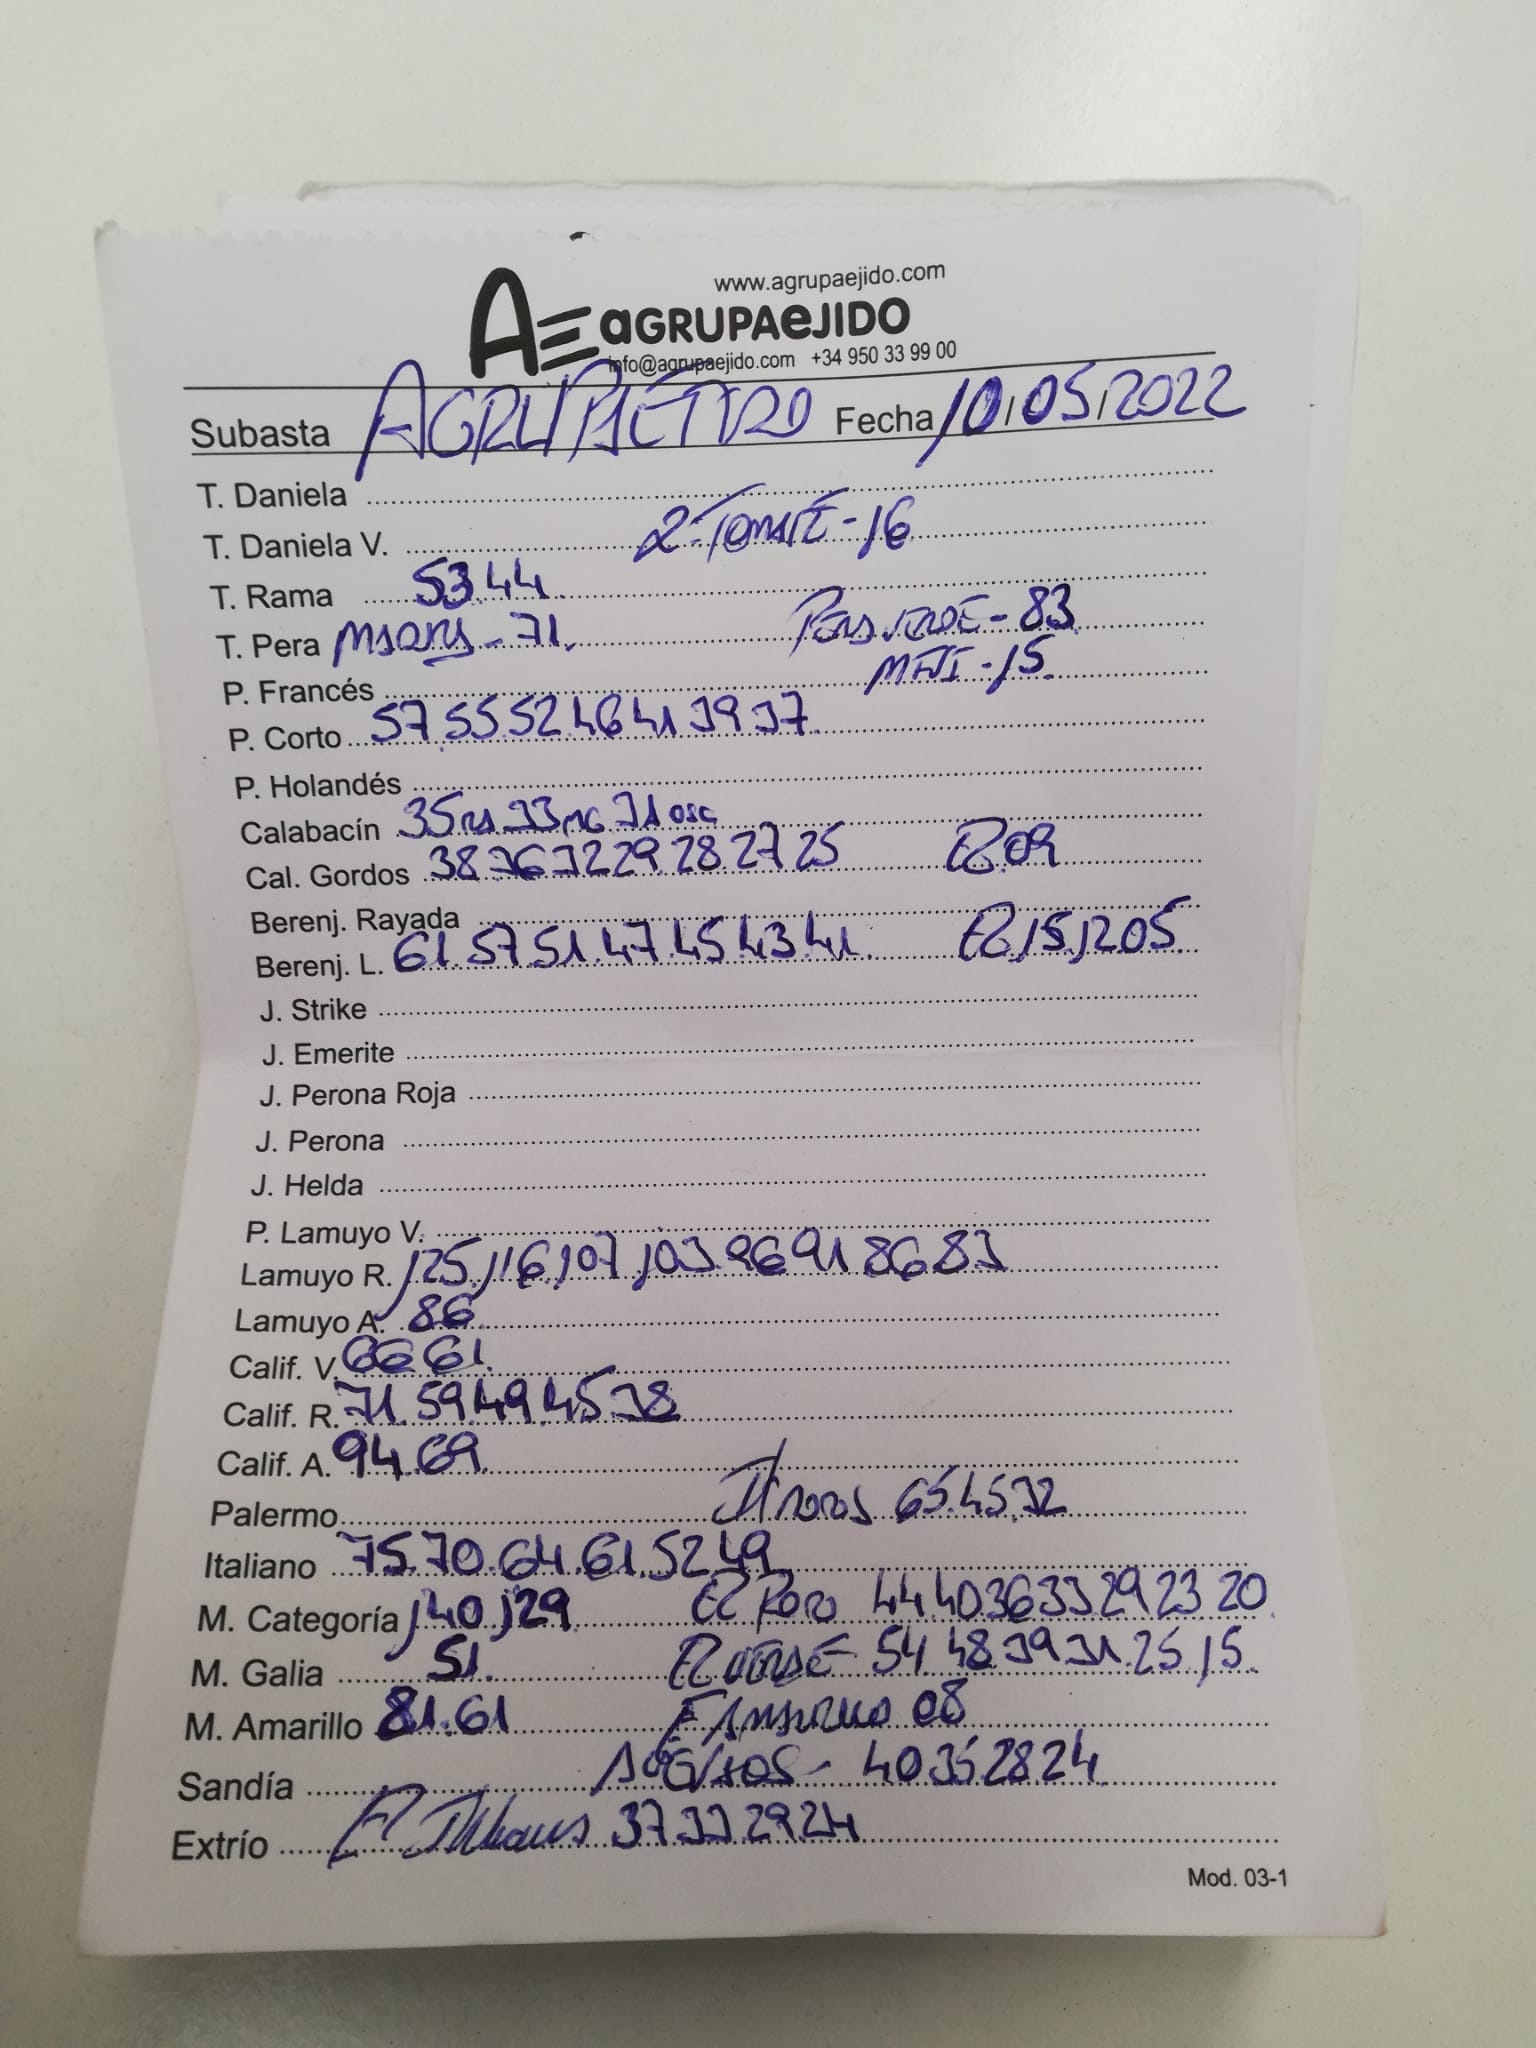 www.agrupaejido.com
AE aGRUPAeJIDO
info@agrupaejido.com +34 950 33 99 00
Subasta AGRUPAEJIDO Fecha 10/05/2022
T. Daniela
T. Daniela V. 2-TOMATE-16
T. Rama 53 44
T. Pera 71 83
P. Francés MINI-15
P. Corto 57 55 52 46 41 39 37
P. Holandés
Calabacín 35 33 31
Cal. Gordos 38 36 32 29 28 27 25 09
Berenj. Rayada
Berenj. L. 61 57 51 47 45 43 41 15 12 05
J. Strike
J. Emerite
J. Perona Roja
J. Perona
J. Helda
P. Lamuyo V.
Lamuyo R. 125 116 107 103 96 91 86 83
Lamuyo A. 86
Calif. V. 66 61
Calif. R. 71 59 49 45 38
Calif. A. 94 69
Palermo 65 45 32
Italiano 75 70 64 61 52 49
M. Categoría 140 129 44 40 36 33 29 23 20
M. Galia 51 54 48 39 31 25 15
M. Amarillo 81 61 08
Sandía 40 35 28 24
Extrío 37 33 29 24
Mod. 03-1